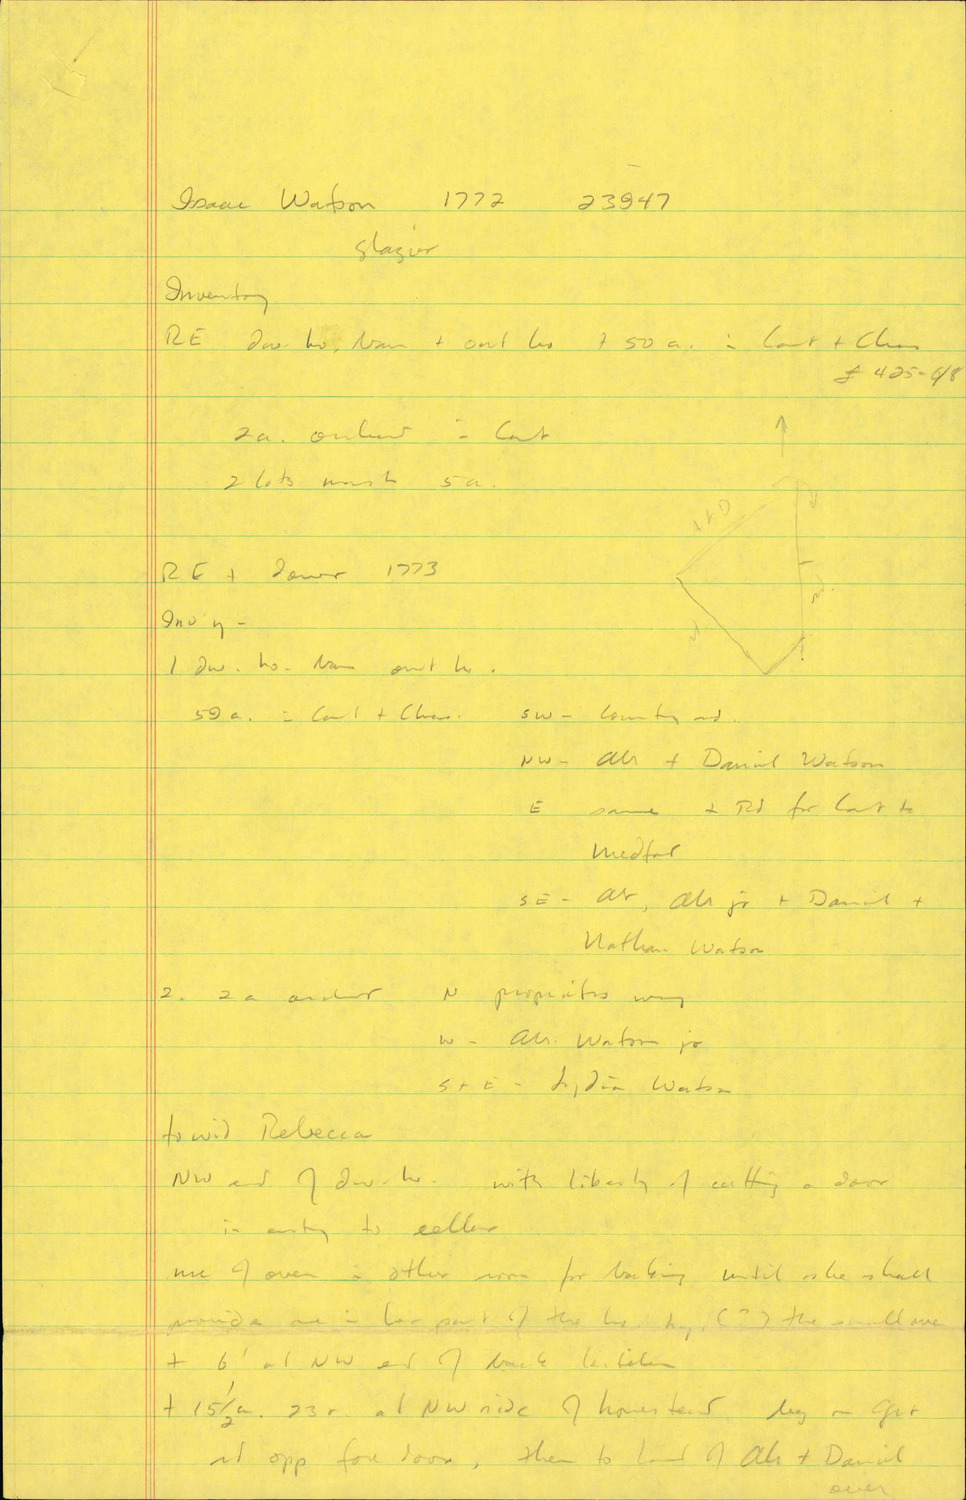 Isaac Watson 1772 23947
glazier
Inventory
RE dw. ho, barn + out ho + 50 a. in Camb + Chas
£ 425-6/8
2a. orchard in Camb
2 lots marsh 5a.
A + D
rd
rd.
RE + dower 1773
Inv'y -
1 dw. ho. barn out ho.
50 a. in Camb + Chas. SW - County rd.
NW - Abr + Daniel Watson
E same + Rd for Camb to
Medford
SE - Abr, Abr jr + Daniel +
Nathan Watson
2. 2a orchard N proprietors way
W - Abr. Watson jr
S + E - Lydia Watson
to wid Rebecca
NW end of dw. ho. with liberty of cutting a door
in entry to cellar
use of oven in other room for baking until she shall
provide one in her part of the ho. by (?) the small one
+ 6' at NW end of back kitchen
+ 15 1/2 a. 23 r. at NW side of homestead beg on Gr
rd opp fore door, then to land of Abr + Daniel
over